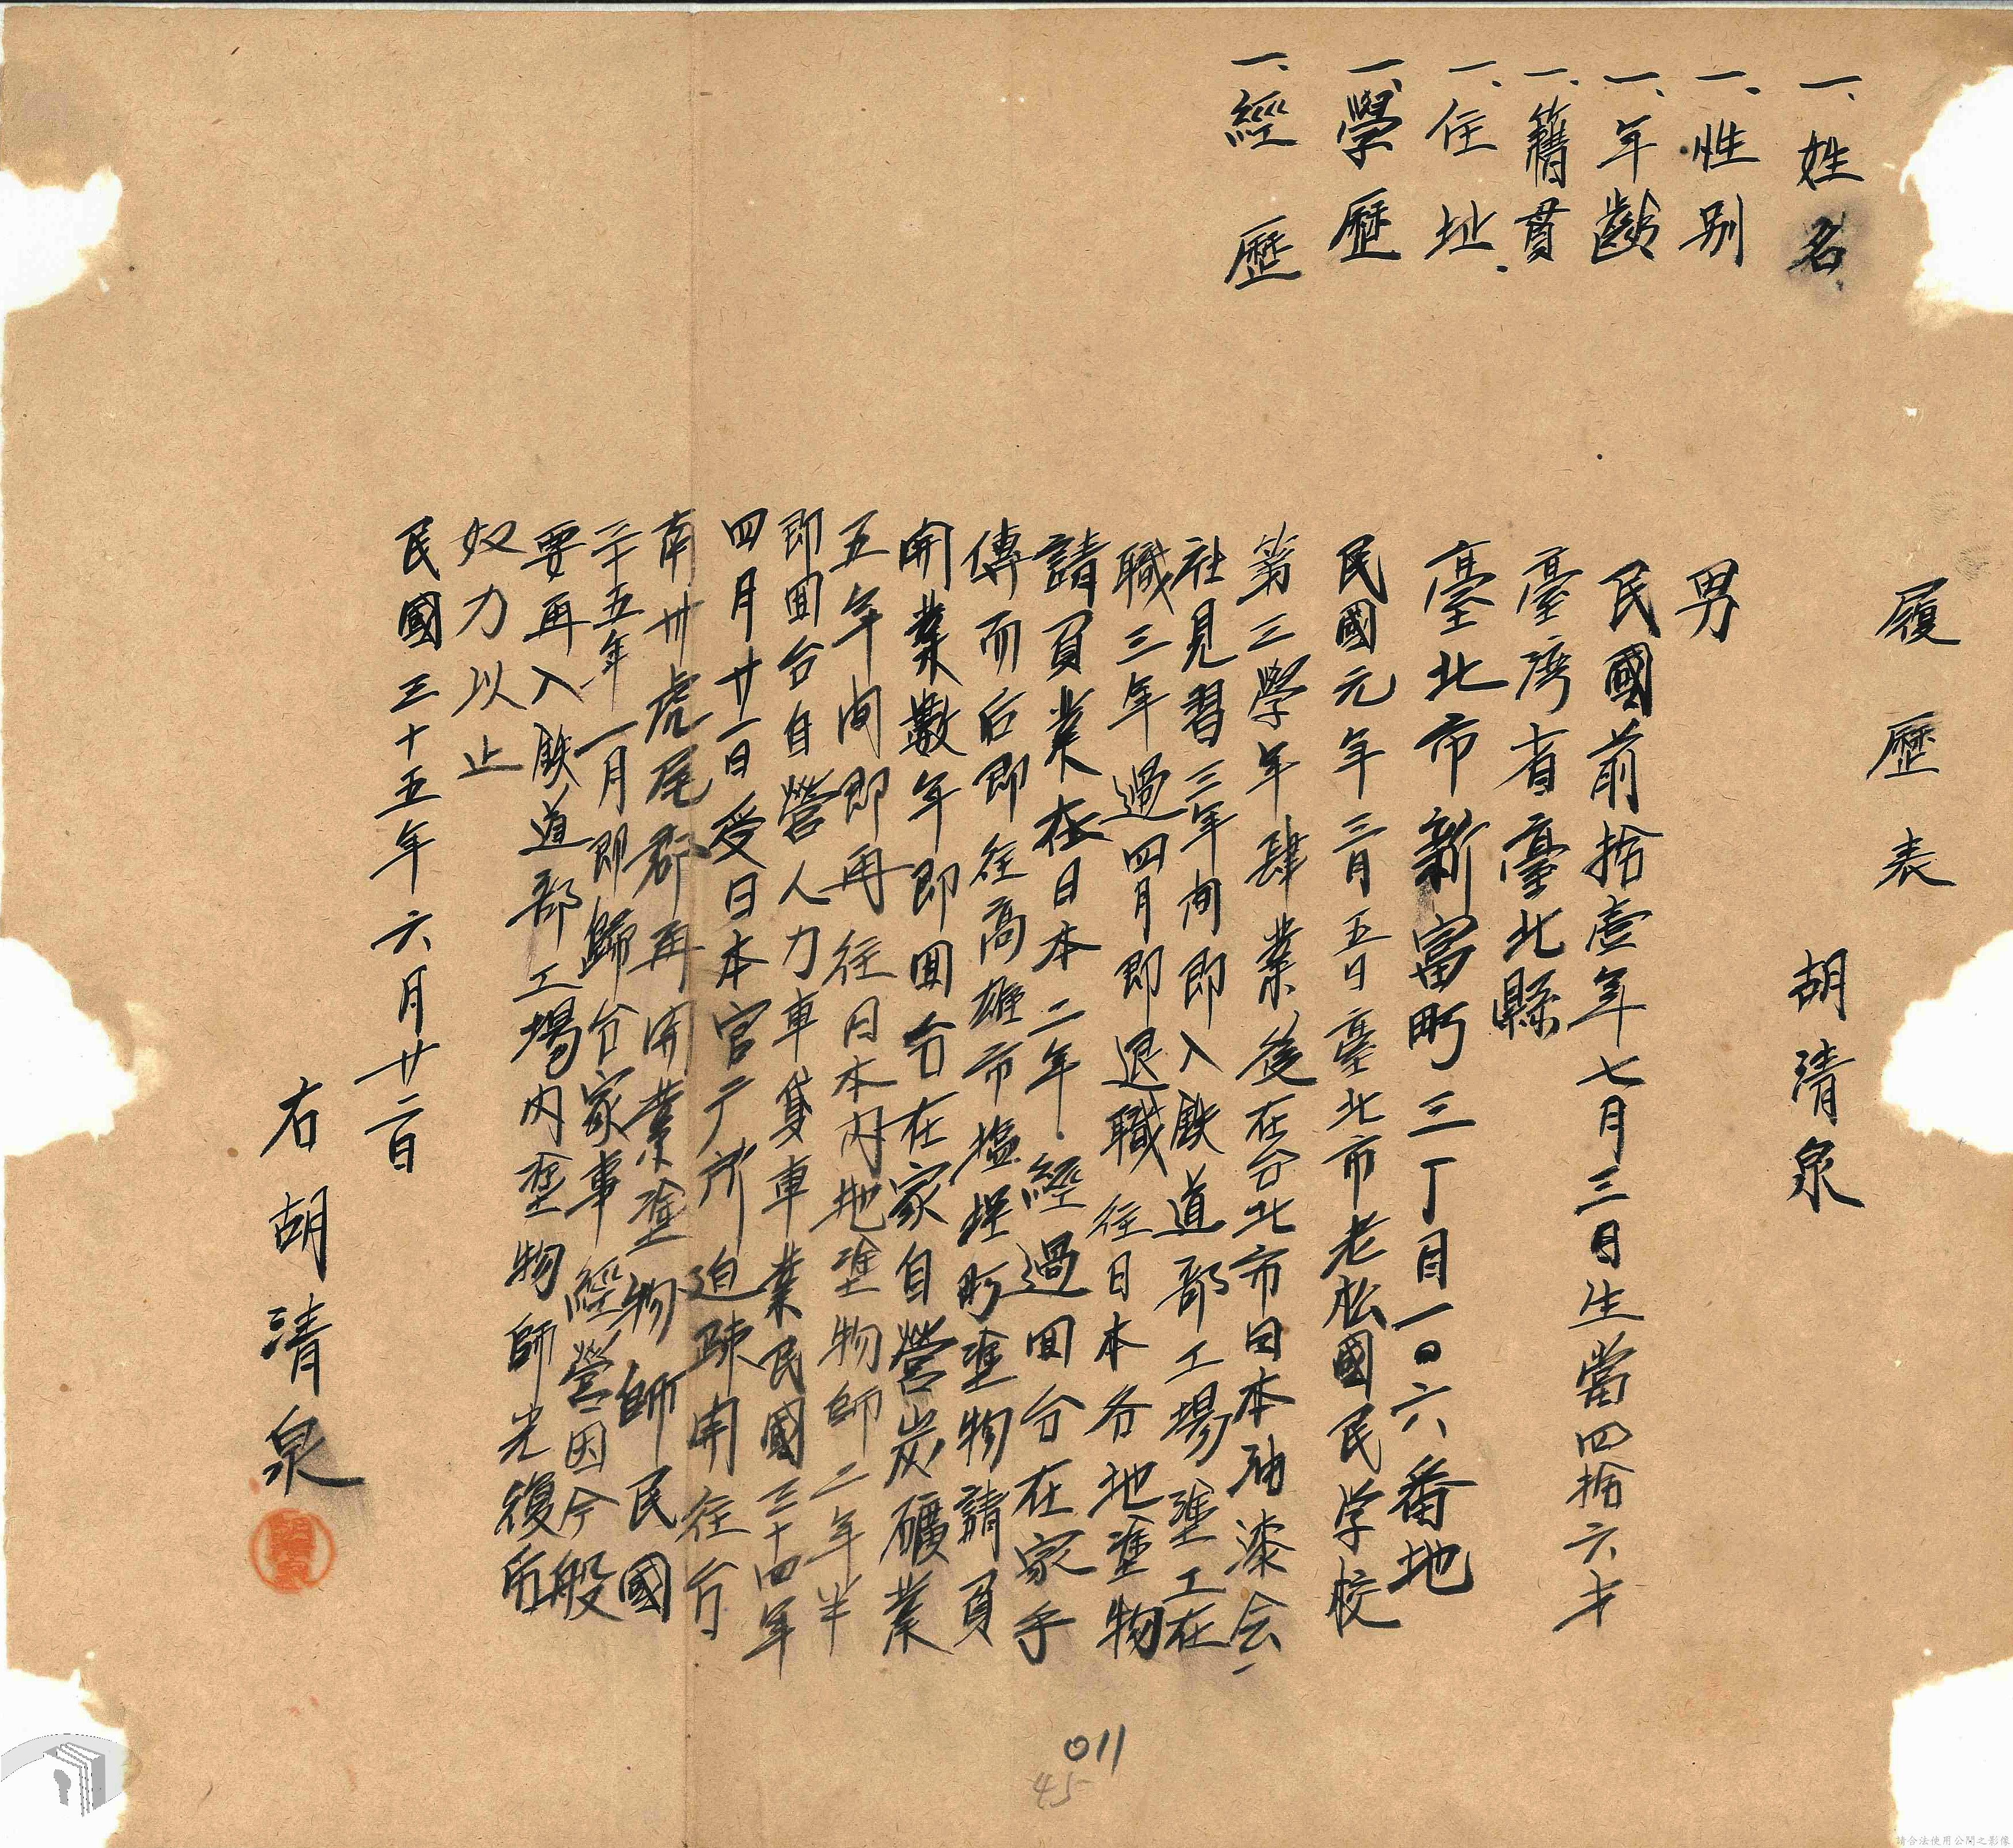 履歷表
一、姓名 胡清泉
一、性別 男
一、年齡 民國前拾壹年七月三日生當四拾六才
一、籍貫 臺湾省臺北縣
一、住址 臺北市新富町三丁目一0六番地
一、學歷 民國元年三月五日臺北市老松國民学校
第三學年肄業後在台北市日本油漆会
一、經歷
社見習三年间即入鉄道部工場塗工在
職三年過四月即退職往日本各地塗物
請負業在日本二年經過囬台在家手
傳而后即往高雄市塩埕町塗物請負
開業數年即囬台在家自營炭礦業
五年间即再往日本内地塗物師二年半
即囬台自營人力車貸車業民國三十四年
四月廿一日受日本官广所迫疎開往台
南卅虎尾郡再開業塗物師民國
三十五年一月即歸台家事經營因今般
要再入鉄道部工場内塗物師光復所
奴力以止
民國三十五年六月廿二日
右胡清泉
011
45
請合法使用公開之影像